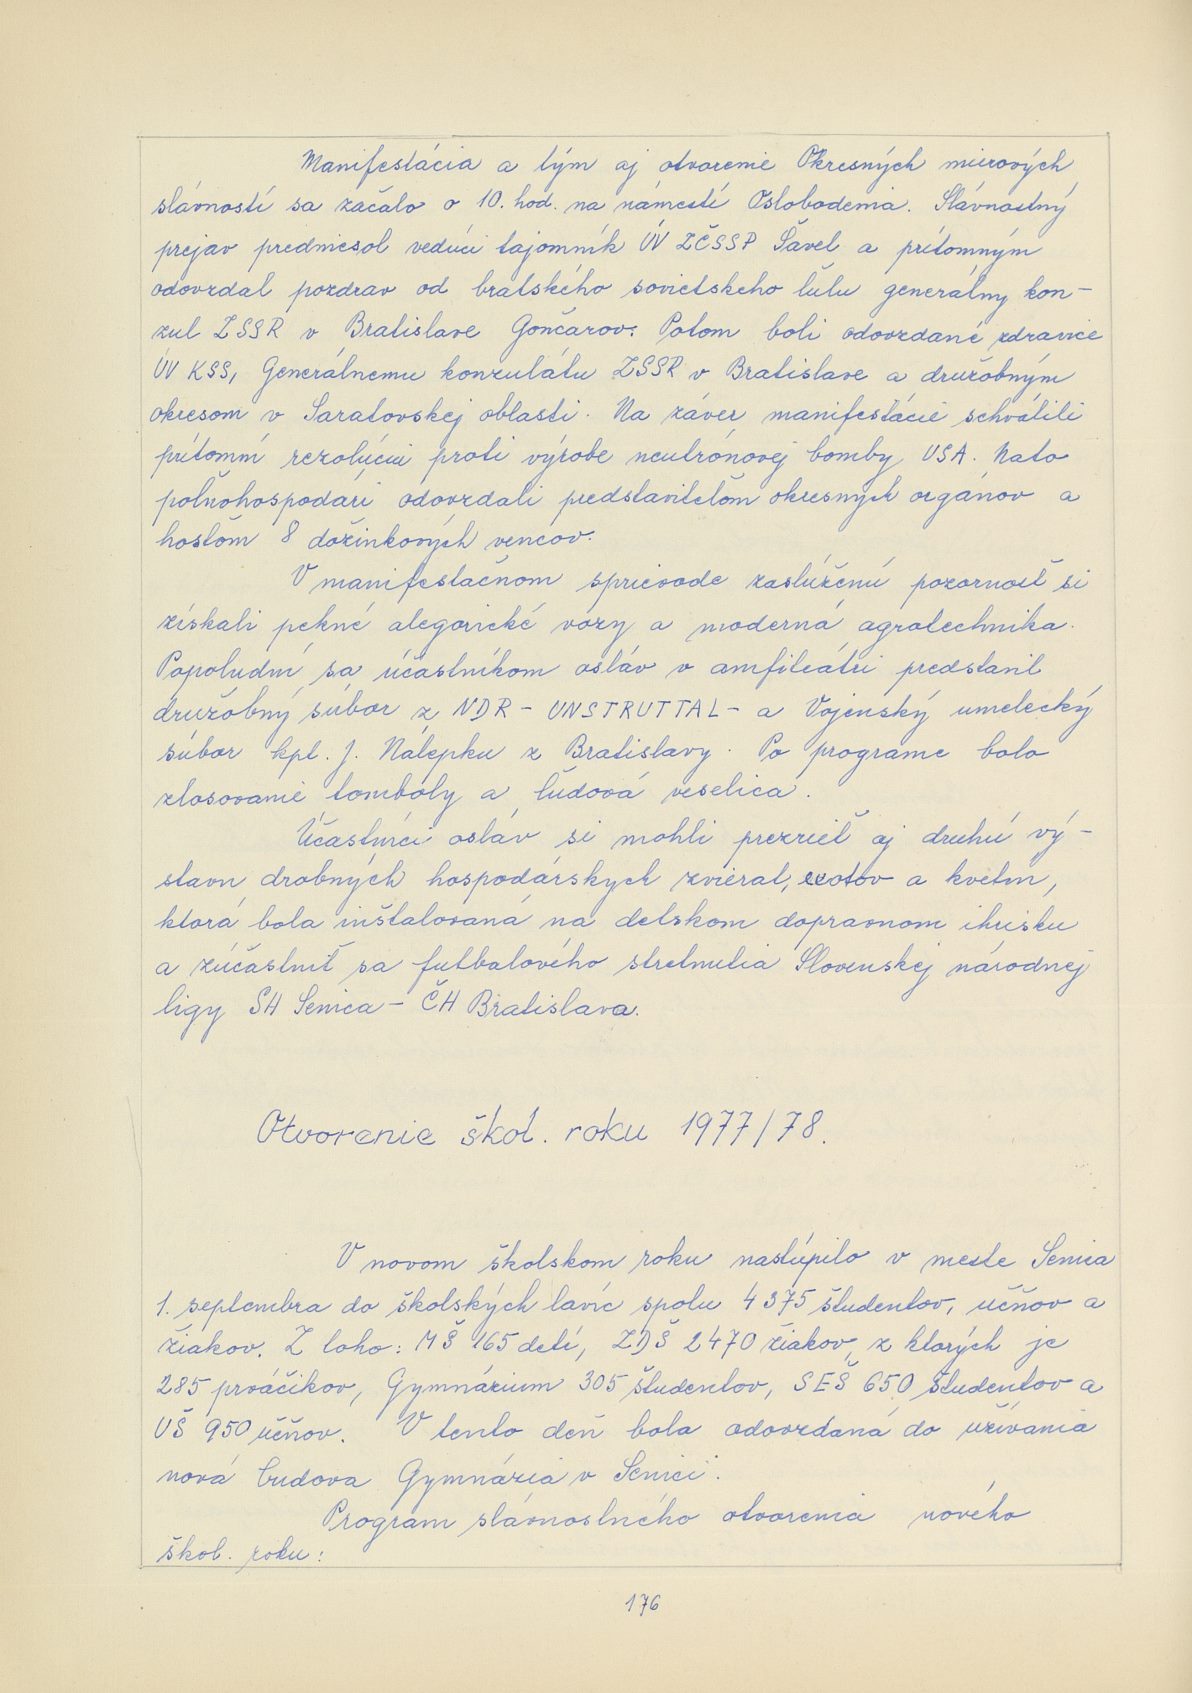 Manifestácia a tým aj otvorenie Okresných mierových
slávností sa začalo o 10. hod. na námestí Oslobodenia. Slávnostný
prejav predniesol vedúci tajomník ÚV ZČSSP Šável a prítomným
odovzdal pozdrav od bratského sovietskeho ľudu generálny kon-
zul ZSSR v Bratislave Gončarov. Potom boli odovzdané zdravice
ÚV KSS, Generálnemu konzulátu ZSSR v Bratislave a družobným
okresom v Saratovskej oblasti. Na záver manifestácie schválili
prítomní rezolúciu proti výrobe neutrónovej bomby USA. Nato
poľnohospodári odovzdali predstaviteľom okresných orgánov a
hosťom 8 dožinkových vencov.
V manifestačnom sprievode zaslúženú pozornosť si
získali pekné alegorické vozy a moderná agrotechnika.
Popoludní sa účastníkom osláv v amfiteátri predstavil
družobný súbor z NDR - UNSTRUTTAL - a Vojenský umelecký
súbor kpt. J. Nálepku z Bratislavy. Po programe bolo
zlosovanie tomboly a ľudová veselica.
Účastníci osláv si mohli prezrieť aj druhú vý-
stavu drobných hospodárskych zvierat, exotov a kvetín,
ktorá bola inštalovaná na detskom dopravnom ihrisku
a zúčastniť sa futbalového stretnutia Slovenskej národnej
ligy SH Senica - ČH Bratislava.
Otvorenie škol. roku 1977/78.
V novom školskom roku nastúpilo v meste Senica
1. septembra do školských lavíc spolu 4 375 študentov, učňov a
žiakov. Z toho: MŠ 165 detí, ZDŠ 2 470 žiakov, z ktorých je
285 prváčikov, Gymnázium 305 študentov, SEŠ 650 študentov a
UŠ 950 učňov. V tento deň bola odovzdaná do užívania
nová budova Gymnázia v Senici.
Program slávnostného otvorenia nového
škol. roku:
176